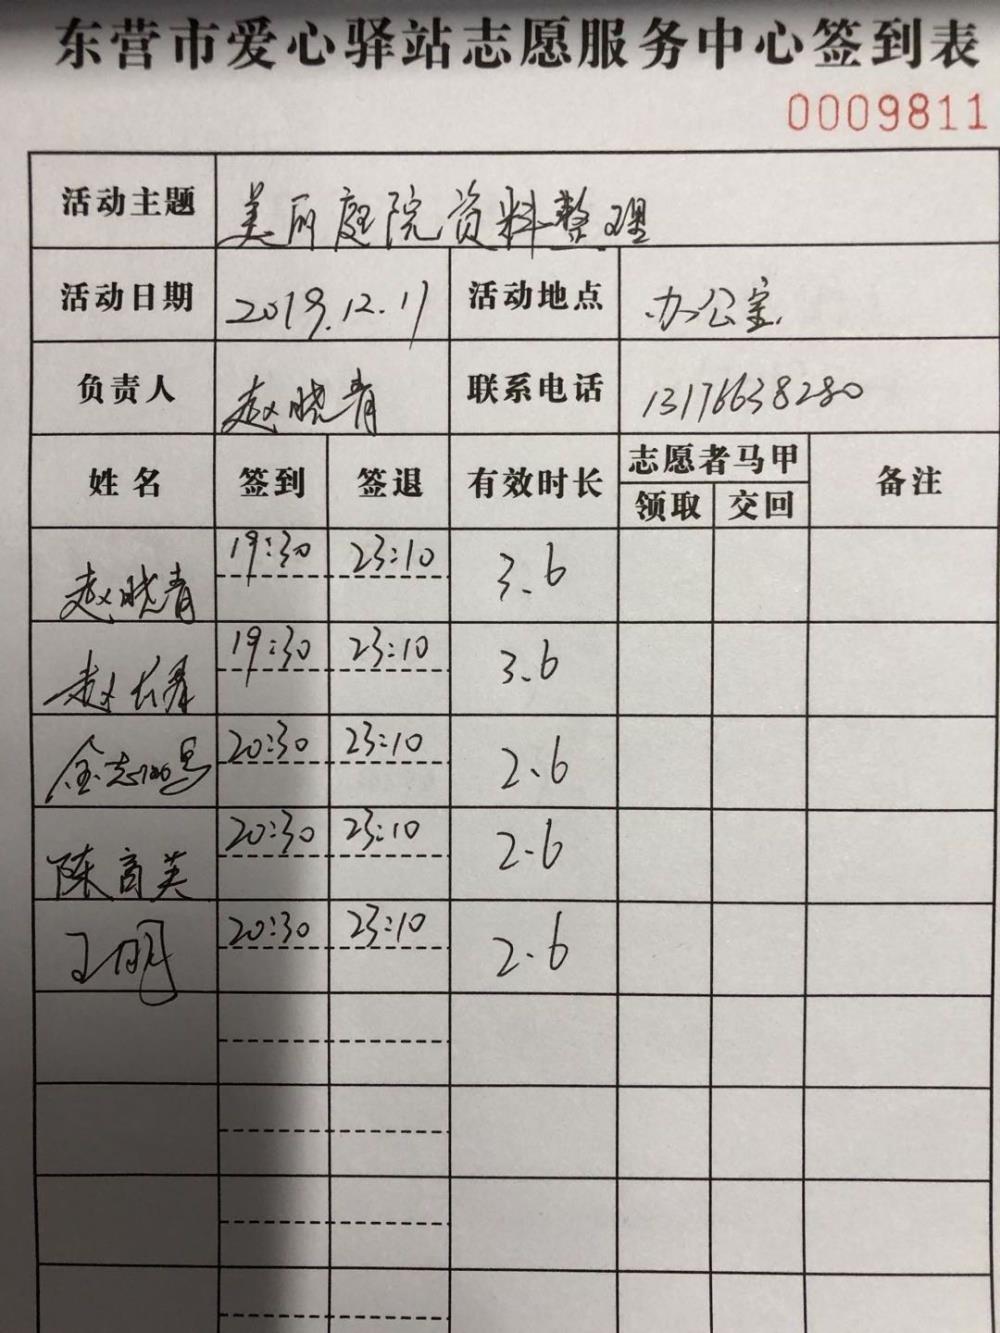 东营市爱心驿站志愿服务中心签到表
0009811
活动主题 美丽庭院资料整理
活动日期 2019.12.11 活动地点 办公室
负责人 赵晓青 联系电话 13176638280
姓名 签到 签退 有效时长 志愿者马甲 备注
领取 交回
赵晓青 19:30 23:10 3.6
赵 19:30 23:10 3.6
金志 20:30 23:10 2.6
陈商芙 20:30 23:10 2.6
王明 20:30 23:10 2.6